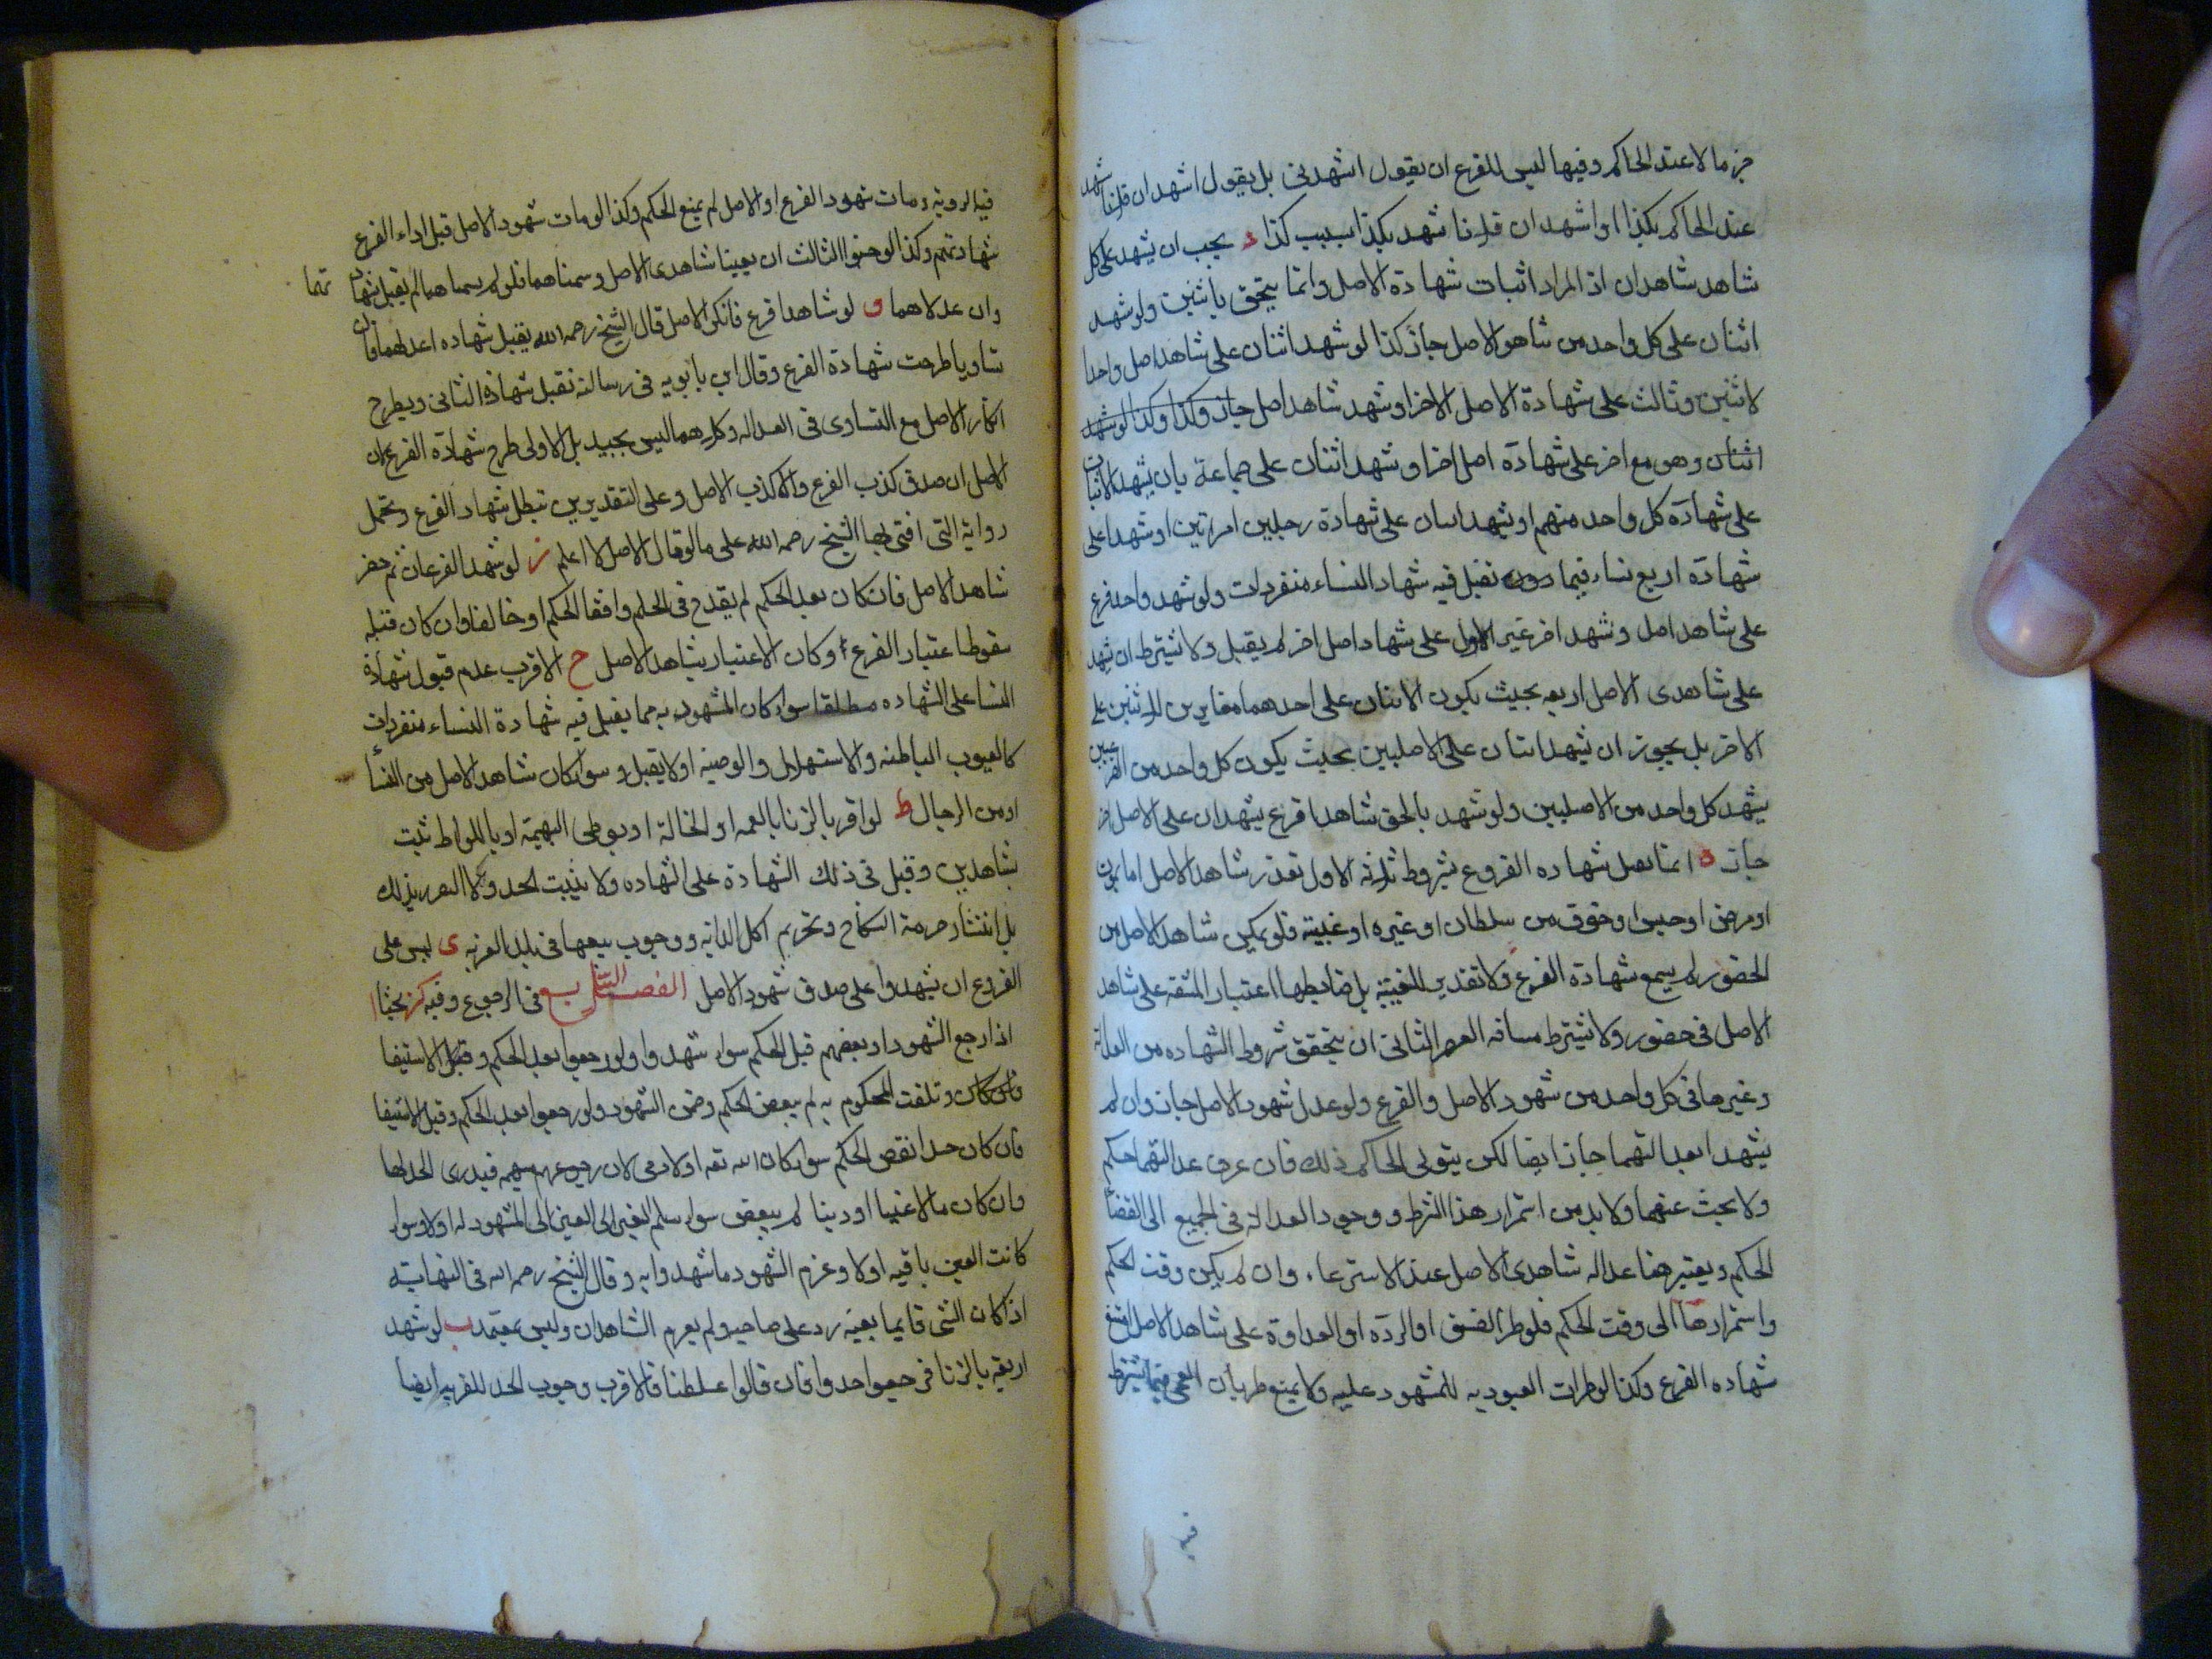 جزما لا عند الحاكم وفيها ليس للفرع ان يقول اشهدنى بل يقول اشهد ان فلانا شهد
عند الحاكم بكذا او اشهد ان فلانا شهد بكذا بسبب كذا د يجب ان يشهد على كل
شاهد شاهدان اذ المراد اثبات شهادة الاصل وانما يتحقق باثنين ولو شهد
اثنان على كل واحد من شاهدى الاصل جاز كذا لو شهد اثنان على شاهد اصل واحد
لاثنين وثالث على شهادة الاصل الاخر او شهد شاهد اصل جاز وكذا وكذا لو شهد
اثنان وهو مع اخر على شهادة اصل اخر او شهد اثنان على جماعة بان يشهد الاثنان
على شهادة كل واحد منهم او يشهد اثنان على شهادة رجلين امراتين او شهدا على
شهادة اربع نساء فيما تقبل فيه شهاد النساء منفردات ولو شهد واحد فرع
على شاهد اصل وشهد اخر غير الاول على شهاد اصل اخر لم يقبل ولا يشترط ان يشهد
على شاهدى الاصل اربعه بحيث يكون الاثنان على احدهما مغايرين للاثنين على
الاخر بل يجوز ان يشهد اثنان على الاصليين بحيث يكون كل واحد من الفرعيين
يشهد كل واحد من الاصليين ولو شهد بالحق شاهدا فرع يشهدان على الاصل اخر
جاز ه انما تقبل شهاده الفروع بشروط ثلاثه الاول تعذر شاهد الاصل اما بموت
او مرض او حبس او خوف من سلطان او غيره او غيبته فلو يمكن شاهد الاصل من
الحضور لم يسمع شهادة الفرع ولا تقدير للغيبة بل ضابطها اعتبار المشقه على شاهد
الاصل فى حضور ولا يشترط مسافه القصر الثانى ان يتحقق شروط الشهاده من العدالة
وغيرها فى كل واحد من شهود الاصل والفرع ولو عدل شهود الاصل جاز وان لم
يشهدا بعدالتهما جاز ايضا لكن يتولى الحاكم ذلك فان عرف عدالتهما حكم
ولا بحث عنهما ولا بد من استمرار هذا الشرط ووجود العدالة فى الجميع الى القضاء
الحكم ويعتبر هنا عداله شاهدى الاصل عند الاسترعاء وان لم يكن وقت الحكم
واستمرارها الى وقت الحكم فلو طرا الفسق او الردة او العداوة على شاهد الاصل امتنع
شهاده الفرع وكذا لو طرات العبوديه للمشهود عليه ولا يمنع طريان العمى فيما يشترط
فيه
فيه الروية ومات شهود الفرع او الاصل لم يمنع الحكم وكذا لو مات شهود الاصل قبل اداء الفرع
شهادتهم وكذا لو جنوا الثالث ان يعينا شاهدى الاصل وسمناهما فلو لم يسمناهما لم تقبل شهادتهما
وان عدلاهما و لو شاهدا فرع فانكر الاصل قال الشيخ رحمه الله يقبل شهاده اعدلهما فان
تساويا طرحت شهادة الفرع وقال ابن بابويه فى رسالته تقبل شهادة الثانى ويطرح
انكار الاصل مع التساوى فى العداله وكلاهما ليس بجيد بل الاولى طرح شهادة الفرع لان
الاصل ان صدق كذب الفرع والا كذب الاصل وعلى التقديرين تبطل شهاد الفرع وتحمل
رواية التى افتى بها الشيخ رحمه الله على ما لو قال الاصل لا اعلم ز لو شهد الفرعان ثم حضر
شاهد الاصل فان كان بعد الحكم لم يقدح فى الحكم وافقا الحكم او خالفا وان كان قبله
سقوط اعتبار الفرع وكان الاعتبار بشاهد الاصل ح الاقرب عدم قبول شهادة
النسا على الشهاده مطلقا سواء كان المشهود به مما يقبل فيه شهادة النساء منفردات
كالعيوب الباطنه والاستهلال والوصيه او لا يقبل وسواء كان شاهد الاصل من النسأ
او من الرجال ط لو اقر بالزنا بالعمه او الخالة او بوطى البهيمة او باللواط ثبت
بشاهدين وقبل فى ذلك الشهادة على الشهاده ولا يثبت الحد ولا التعزير بذلك
بل انتشار حرمة النكاح وتحريم اكل الدابه ووجوب بيعها فى بلد الغربه ى ليس على
الفروع ان يشهدوا على صدق شهود الاصل الفصل السابع فى الرجوع وفيه كز بحثا ا
اذا رجع الشهود او بعضهم قبل الحكم سواء شهدوا ولو رجعوا بعد الحكم وقبل الاستيفا
فان كان وتلفت المحكوم به لم ينقض الحكم وضمن الشهود ولو رجعوا بعد الحكم وقبل الاستيفا
فان كان حدا نقض الحكم سواء كان لله تعه او لادمى لان رجوعهم شبهه فيدرى الحد لها
وان كان مالا عينا او دينا لم ينقض سواء سلم العين الى المشهود له او لا وسواء
كانت العين باقيه او لا وغرم الشهود ما شهدوا به وقال الشيخ رحمه الله فى النهاية
اذا كان الشئ قايما بعينه رد على صاحبه ولم يغرم الشاهدان وليس بمعتمد ب لو شهد
اربعة بالزنا فرجعوا حدوا فان قالوا غلطنا فالاقرب وجوب الحد للفرية ايضا